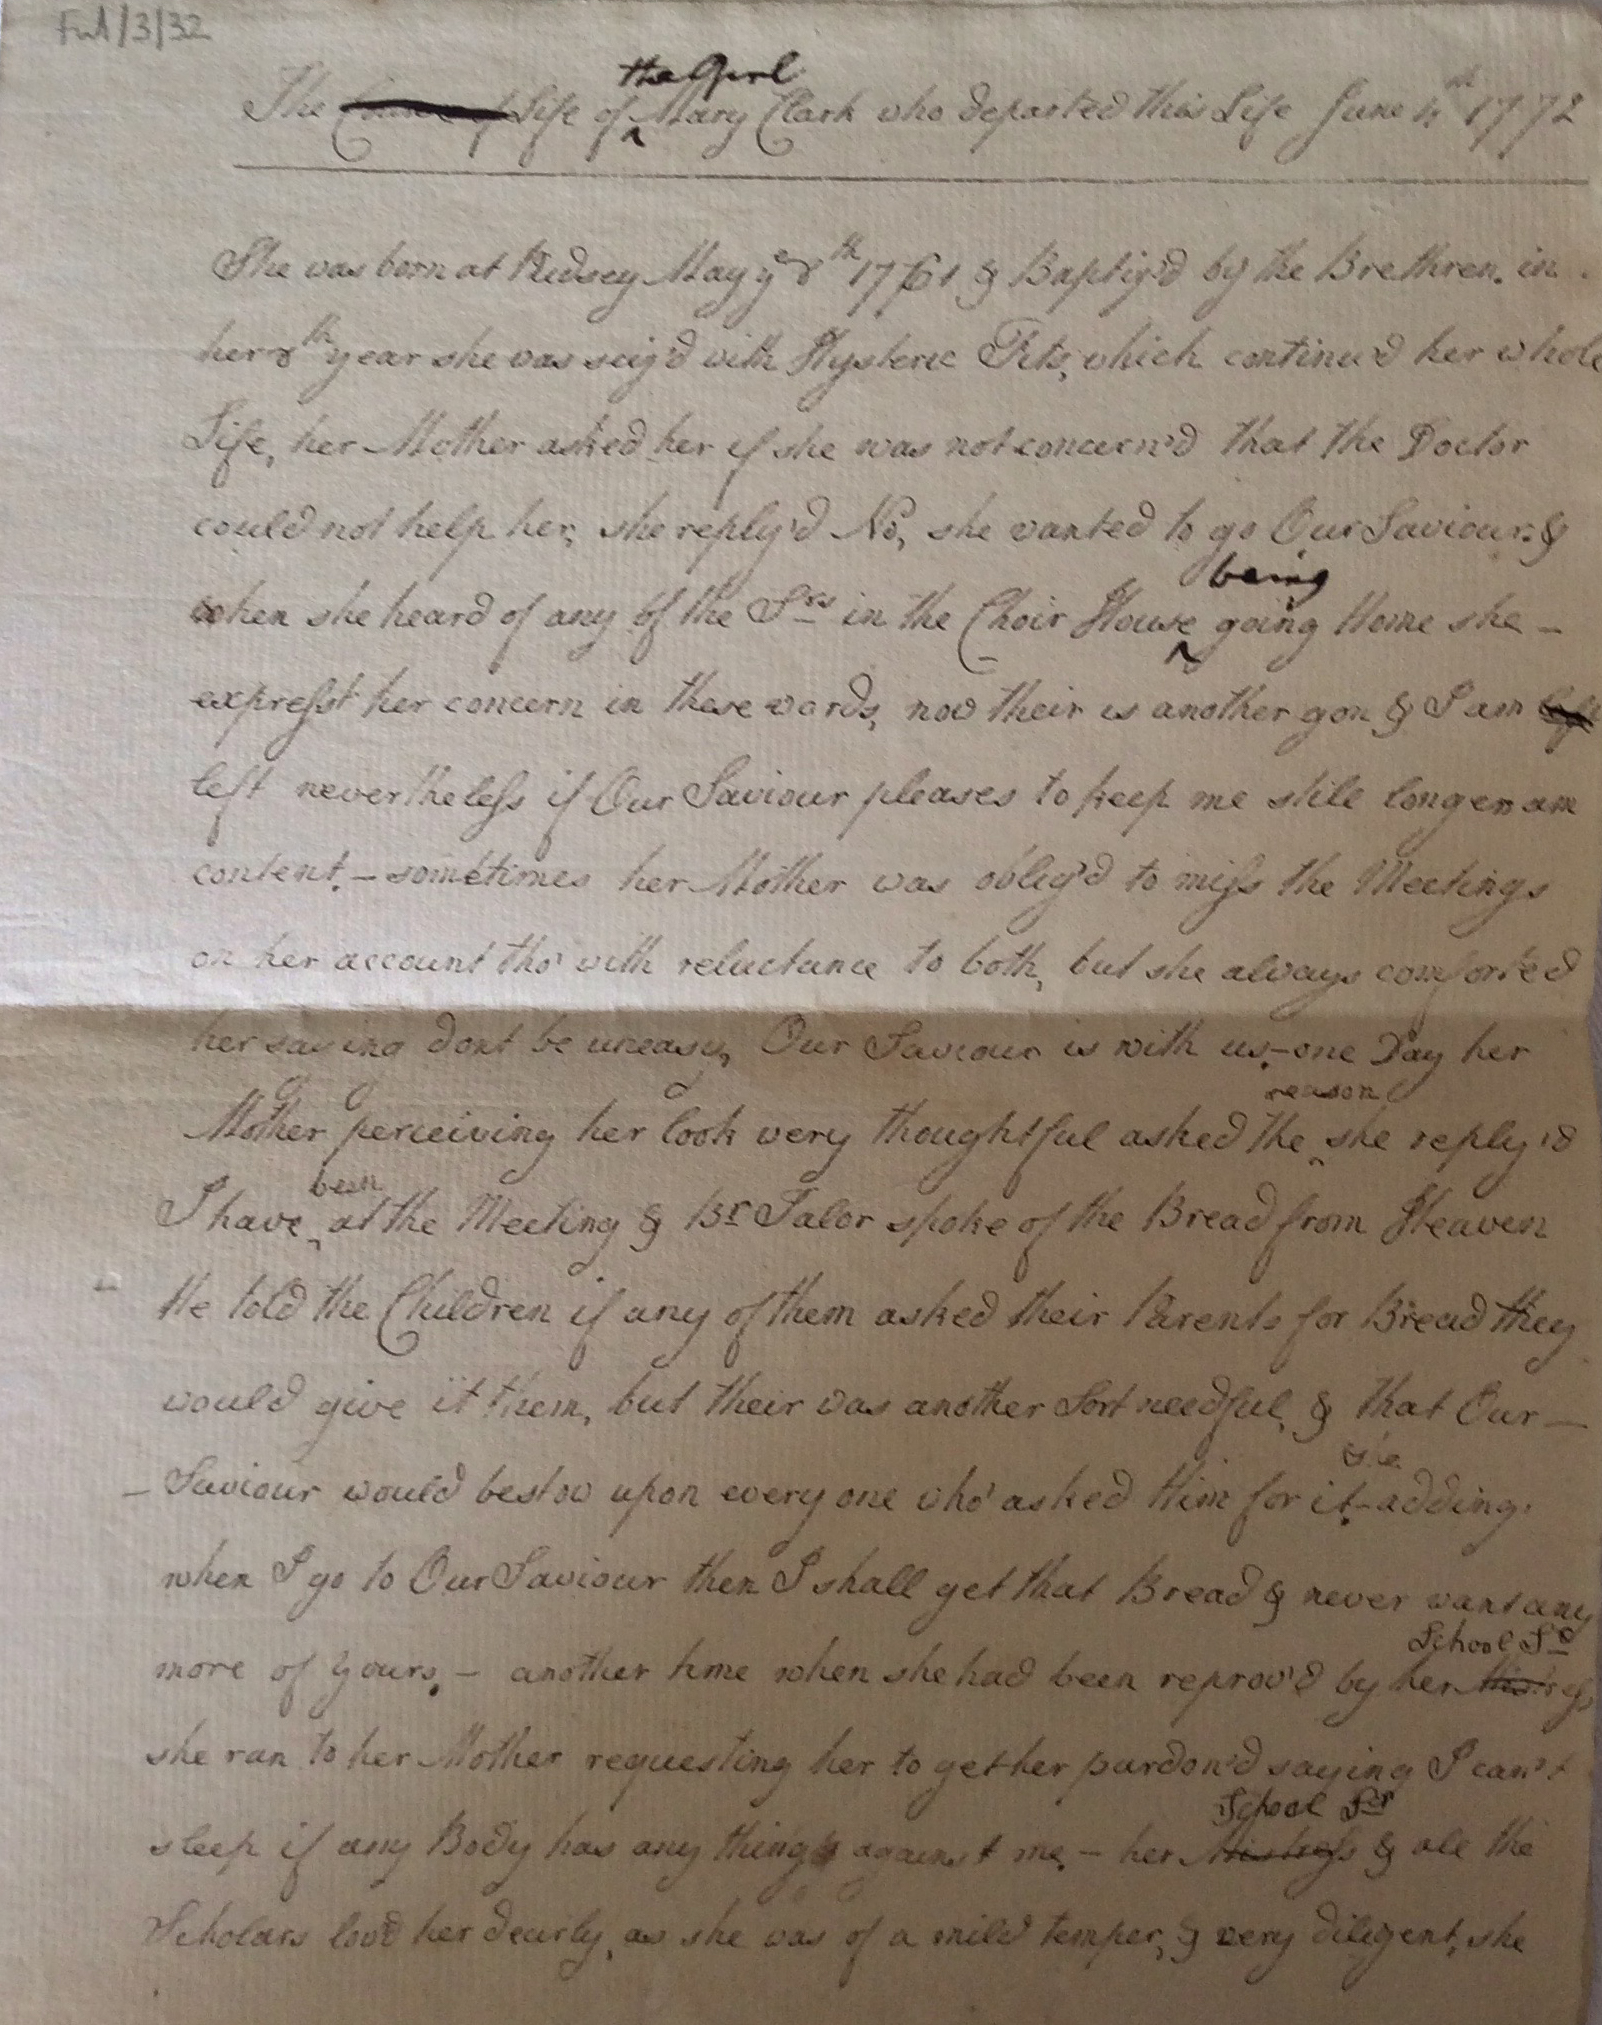 Ful/3/32
the Girl
The Life of Mary Clark who departed this Life June 4th 1772
She was born at Pudsey May ye 8th 1761 & Baptiz'd by the Brethren. in
her 8th year she was seiz'd with Hysteric Fits, which continu'd her whole
Life, her Mother asked her if she was not concern'd that the Doctor
could not help her, she reply'd No, she wanted to go Our Saviour. &
being
when she heard of any of the Srs in the Choir House going Home she –
exprefst her concern in these words, now their is another gon & I am left
left neverthelefs if Our Saviour pleases to keep me still longer am
content. – sometimes her Mother was oblig'd to mifs the Meetings
on her account tho' with reluctance to both, but she always comforted
her saying dont be uneasy, Our Saviour is with us. – one Day her
reason
Mother perceiving her look very thoughtful asked the she reply'd
been
I have at the Meeting & Br Talor spoke of the Bread from Heaven
He told the Children if any of them asked their Parents for Bread they
would give it them, but their was another Sort needful, & that Our –
she
– Saviour would bestow upon every one who' asked Him for it. – adding
when I go to Our Saviour then I shall get that Bread & never want any
School Sr
more of yours. – another time when she had been reprov'd by her Mistrefs
she ran to her Mother requesting her to get her pardon'd saying I can't
School Sr
sleep if any Body has any thing against me. – her Mistrefs & all the
Scholars lov'd her dearly, as she was of a mild temper, & very diligent, she